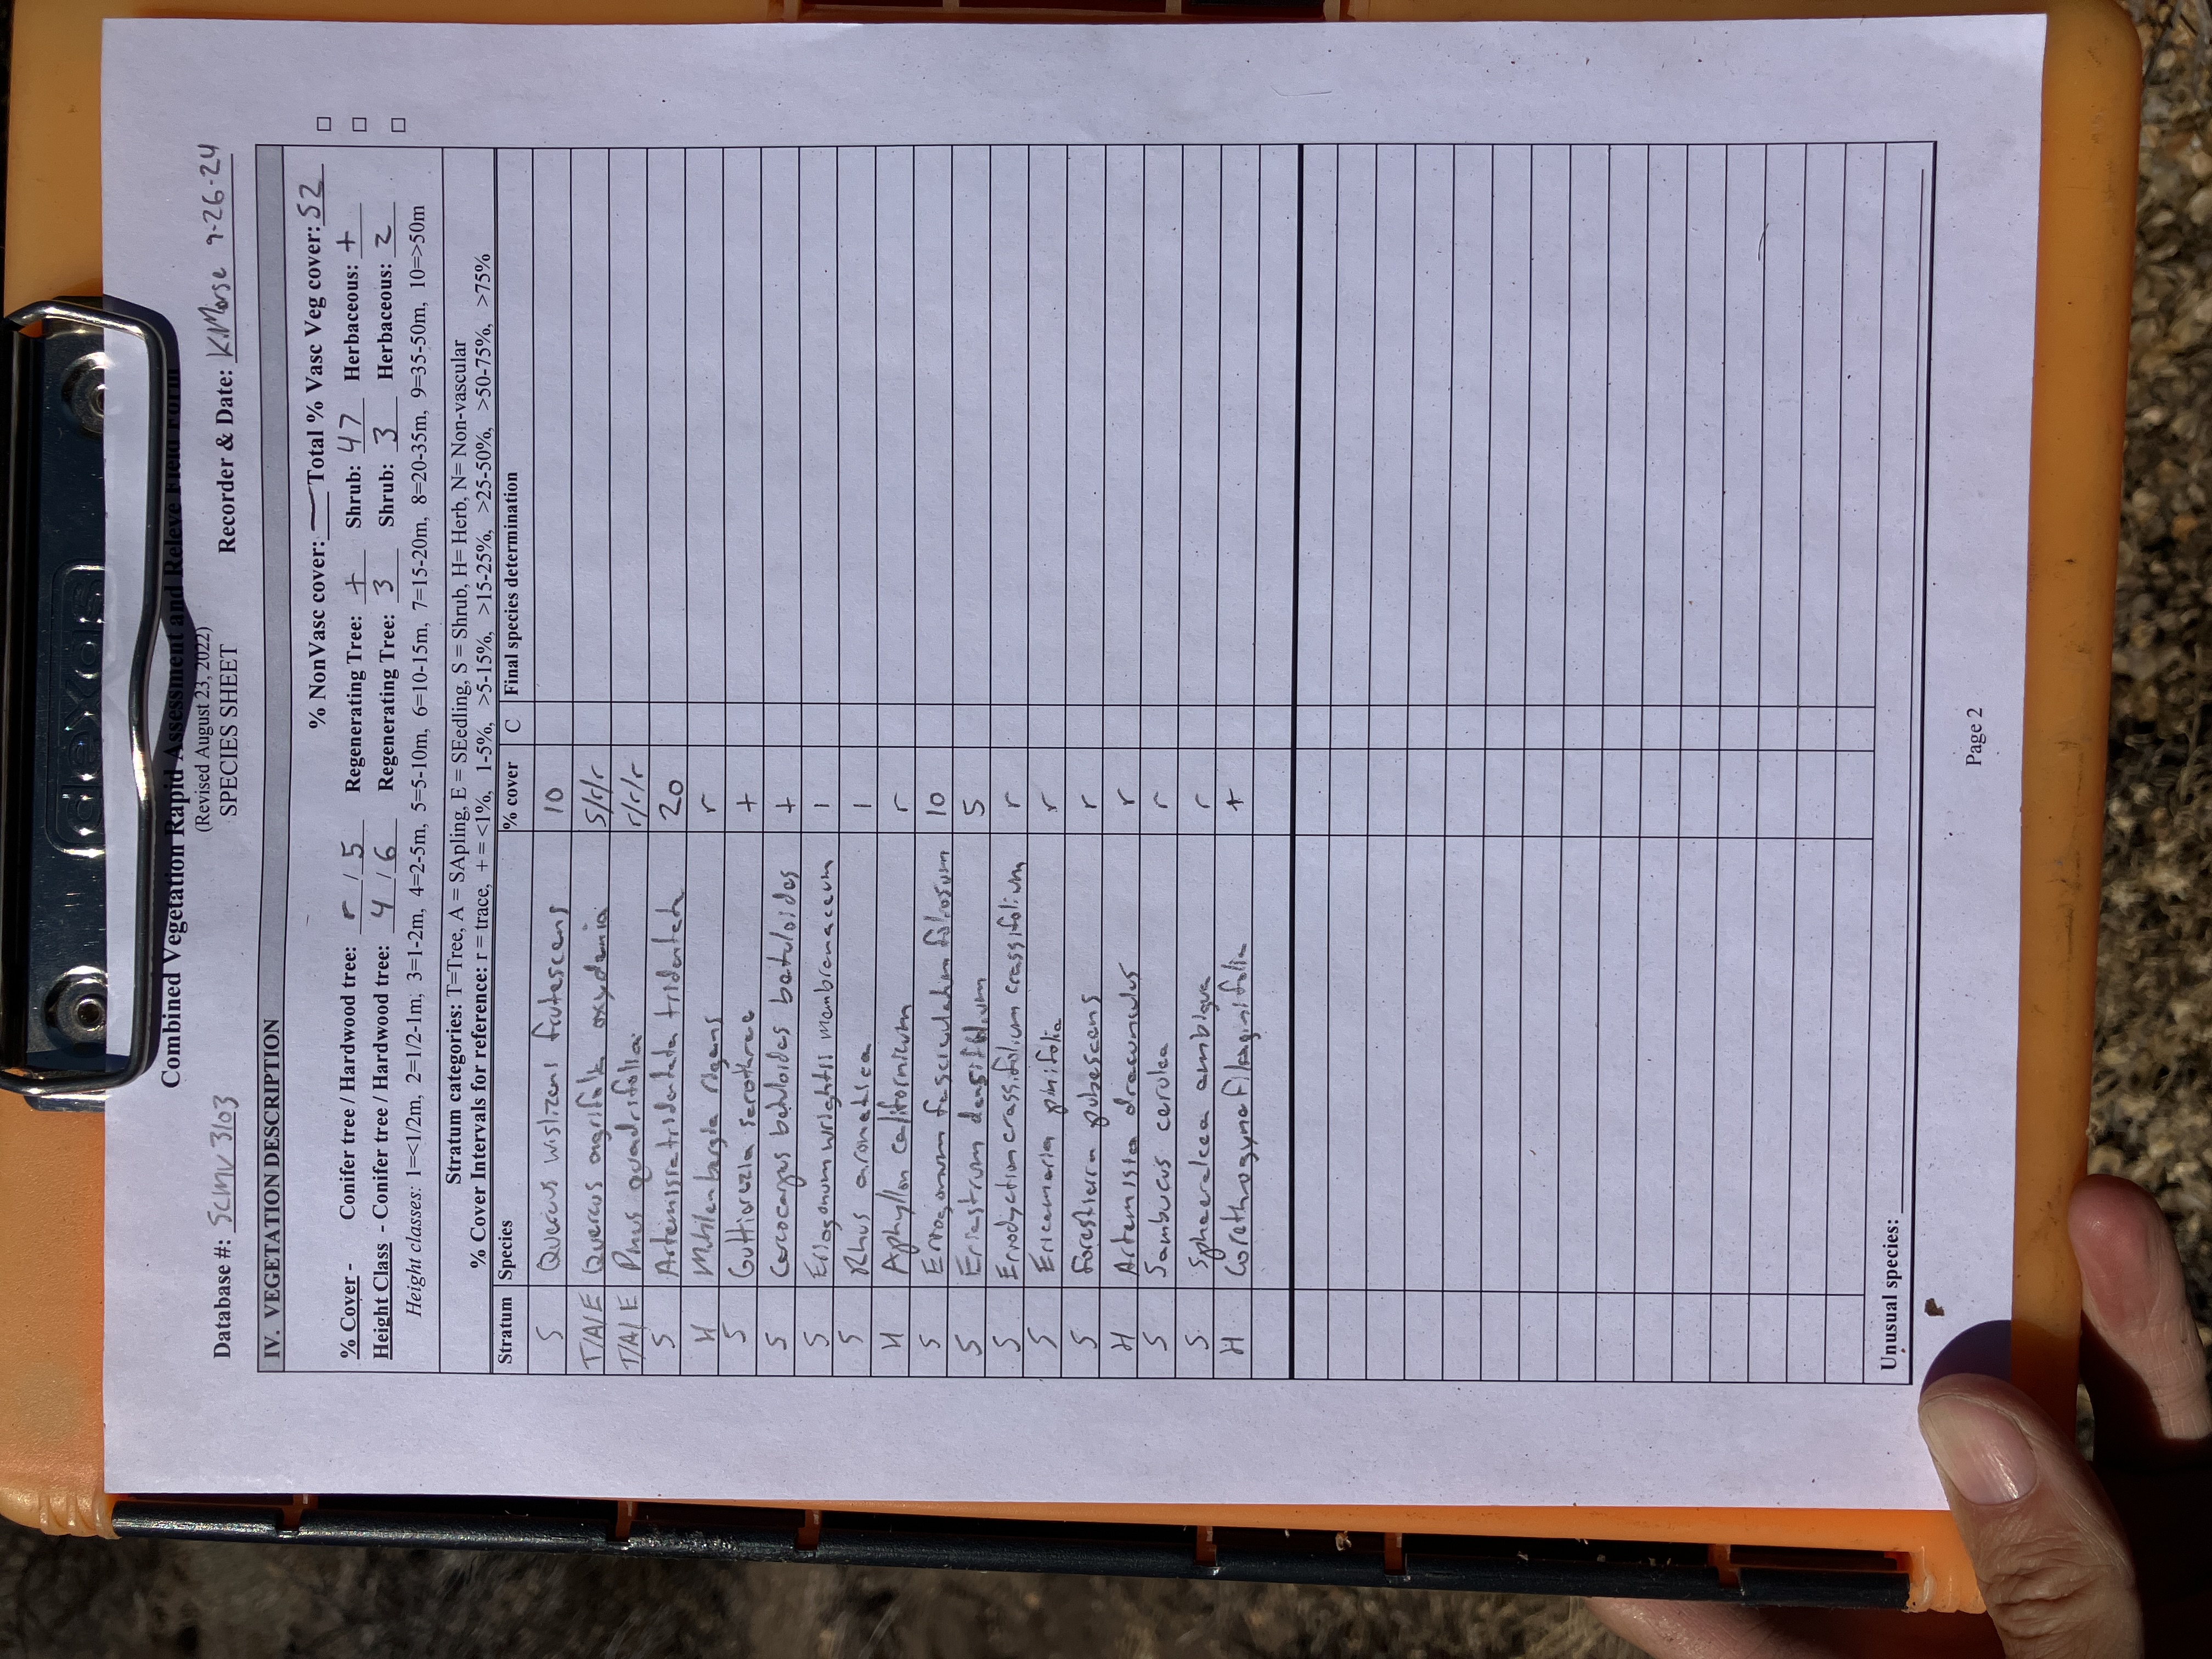 dexas
Combined Vegetation Rapid Assessment and Releve Field Form
(Revised August 23, 2022)
SPECIES SHEET
Database #: SCMV 3103 Recorder & Date: K.Morse 9-26-24
IV. VEGETATION DESCRIPTION
% NonVasc cover: — Total % Vasc Veg cover: 52
% Cover - Conifer tree / Hardwood tree: r / 5 Regenerating Tree: + Shrub: 47 Herbaceous: +
Height Class - Conifer tree / Hardwood tree: 4 / 6 Regenerating Tree: 3 Shrub: 3 Herbaceous: 2
Height classes: 1=<1/2m, 2=1/2-1m, 3=1-2m, 4=2-5m, 5=5-10m, 6=10-15m, 7=15-20m, 8=20-35m, 9=35-50m, 10=>50m
Stratum categories: T=Tree, A = SApling, E = SEedling, S = Shrub, H= Herb, N= Non-vascular
% Cover Intervals for reference: r = trace, + = <1%, 1-5%, >5-15%, >15-25%, >25-50%, >50-75%, >75%
Stratum Species % cover C Final species determination
S Quercus wislizeni frutescens 10
T/A/E Quercus agrifolia oxydenia 5/r/r
T/A/E Pinus quadrifolia r/r/r
S Artemisia tridentata tridentata 20
H Muhlenbergia rigens r
S Guttierezia sarothrae +
S Cercocarpus betuloides betuloides +
S Eriogonum wrightii membranaceum 1
S Rhus aromatica 1
H Aphyllon californicum r
S Eriogonum fasciculatum foliosum 10
S Eriastrum densifolium 5
S Eriodyction crassifolium crassifolium r
S Ericameria pinifolia r
S Forestiera pubescens r
H Artemisia dracunculus r
S Sambucus cerulea r
S Sphaeralcea ambigua r
H Corethrogyne filaginifolia +
Unusual species:
Page 2